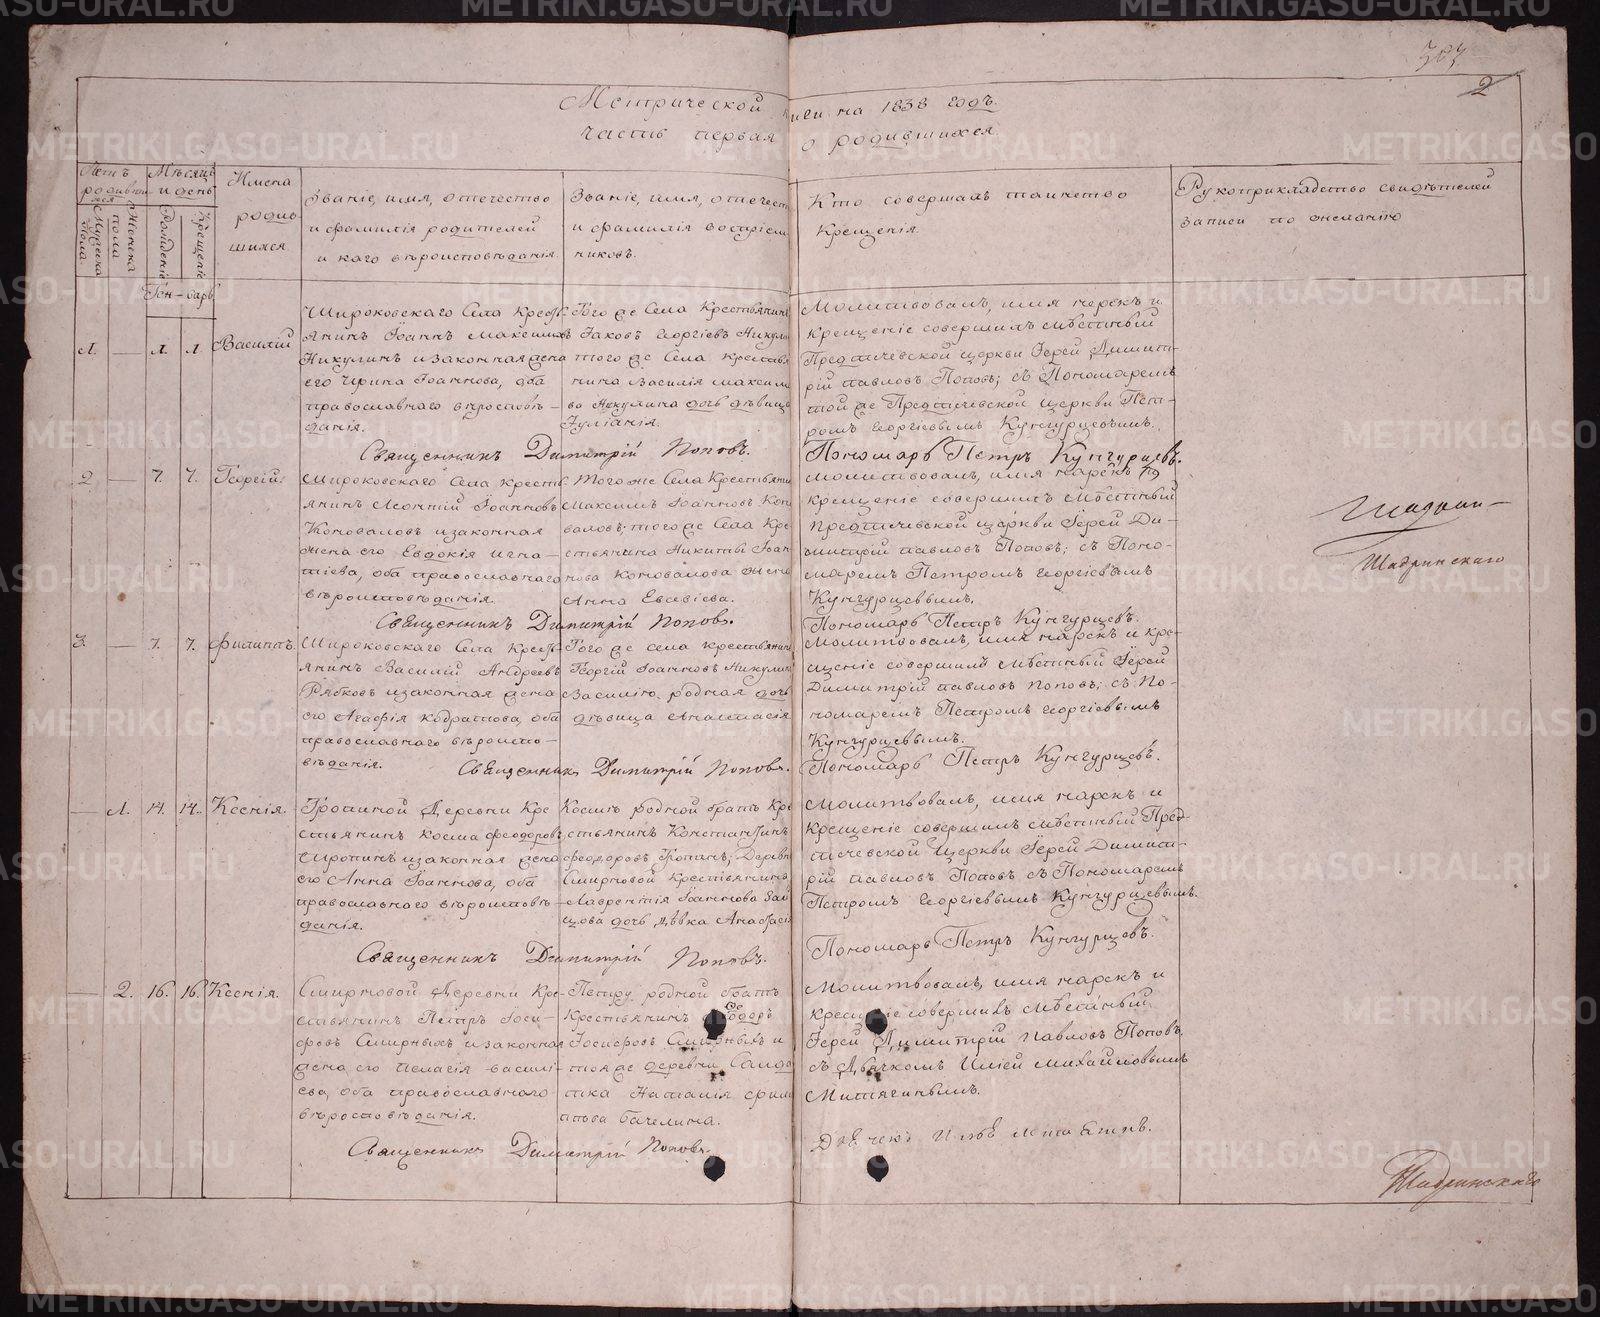 2
Метрической книги на 1838 годъ.
часть первая о родившихся.
Мѣсяцъ и день
Имена родившихся.
Званіе, имя, отечество
и фамилія родителей
и каго вѣроисповѣданія.
Званіе, имя, отечест
и фамилія воспріем
никовъ.
Кто совершалъ таинство
Крещенія.
Рукоприкладство свидѣтелей
записи по желанію
Генварь
1. — 1. 1. Василій
Широковскаго Села Крест
янинъ Іоаннъ Максимовъ
Никулинъ и законная жена
его Ирина Іоаннова, оба
православнаго вѣроисповѣ-
данія.
Того же Села Крестьянинъ
Іаковъ Георгіевъ Никули
того же Села крестья
нина Василія Максим
ва Никулина дочь дѣвица
Іуліанія.
Молитвовалъ, имя нарекъ и
крещеніе совершилъ мѣстный
Предтичевской церкви Іерей Димит-
рій Павловъ Поповъ; съ Пономаремъ
той же Предтичевской Церкви Пет-
ромъ Георгіевымъ Кунгурцевымъ.
Священникъ Димитрій Поповъ.
Пономарь Петръ Кунгурцевъ.
2 — 7. 7. Георгій.
Широковскаго Села Крестьё
янинъ Леонтій Іоанновъ
Коноваловъ и законная
жена его Евдокія Игна-
тіева, оба православнаго
вѣроисповѣданія.
Того же Села Крестьяни
Максимъ Іоанновъ Коно
валовъ; того же Села Кре
стьянина Никиты Іоан
нова Коновалова жена
Анна Евсевіева.
Молитвовалъ, имя нарекъ и
крещеніе совершилъ мѣстный
Предтичевской церкви Іерей Ди-
митрій Павловъ Поповъ; съ Поно-
маремъ Петромъ Георгіевымъ
Кунгурцевымъ.
Священникъ Димитрій Поповъ.
Пономарь Петръ Кунгурцевъ.
Шадринскаго
3. — 7. 7. Филиппъ.
Широковскаго Села Крест
янинъ Василій Андреевъ
Рябковъ и законная жена
его Агафія Кодратова, оба
православнаго вѣроиспо-
вѣданія.
Того же села крестьянинъ
Георгій Іоанновъ Никулин
Василію родная дочь
дѣвица Анастасія
Молитвовалъ, имя нарекъ и кре-
щеніе совершилъ мѣстный Іерей
Димитрій Павловъ Поповъ; съ По-
номаремъ Петромъ Георгіевымъ
Кунгурцевымъ.
Священникъ Димитрій Поповъ.
Пономарь Петръ Кунгурцевъ.
— 1. 14. 14. Ксенія.
Деревни Кре
стьянинъ Косма Феодоровъ
и законная жена
его Анна Іоаннова, оба
православнаго вѣроисповѣ-
данія.
Космѣ родной братъ Кре
стьянинъ Константинъ
Феодоровъ Деревн
Смирновой крестьянина
Лаврентія Іоаннова Зай
цова дочь дѣвка Анастасія
Молитвовалъ, имя нарекъ и
крещеніе совершилъ мѣстный Пред-
тичевской Церкви Іерей Димит-
рій Павловъ Поповъ съ Пономаремъ
Петромъ Георгіевымъ Кунгурцевымъ.
Священникъ Димитрій Поповъ.
Пономарь Петръ Кунгурцевъ.
— 2. 16. 16. Ксенія.
Смирновой Деревни Кре-
стьянинъ Петръ Іоси-
фовъ Смирныхъ и законная
жена его Пелагія Васили-
ева, оба православнаго
вѣроисповѣданія.
Петру родной братъ
Крестьянинъ Феодоръ
Іосифовъ Смирныхъ и
той же деревни Солда
тка Наталія Фили
пова Бачелина.
Молитвовалъ, имя нарекъ и
крещеніе совершилъ мѣстный
Іерей Димитрій Павловъ Поповъ,
съ Дьячкомъ Иліей Михайловымъ
Митягинымъ.
Священникъ Димитрій Поповъ.
Шадринскаго
METRIKI.GASO-URAL.RU